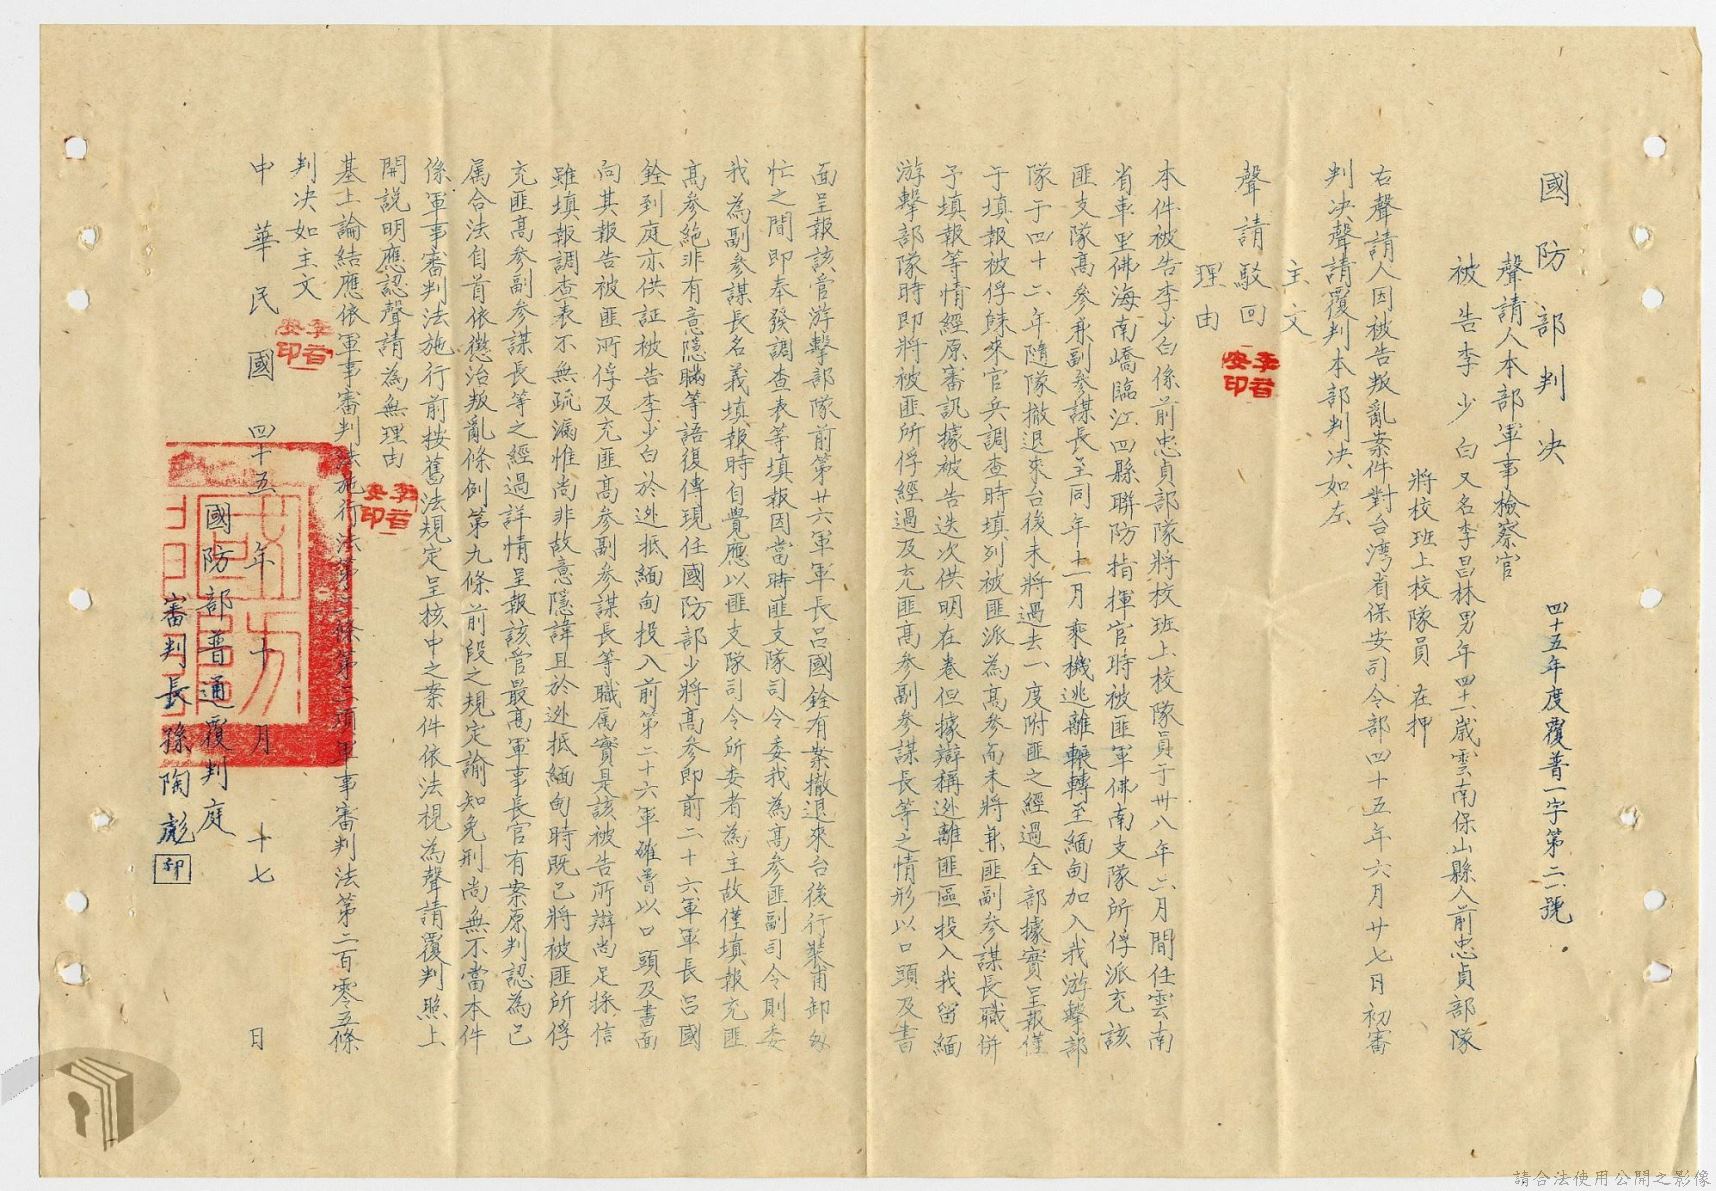 國防部判決
四十五年度覆普一字第二一號
聲請人本部軍事檢察官
被告李少白又名李昌林男年四十六歲雲南保山縣人前忠貞部隊
將校班上校隊員 在押
右聲請人因被告叛亂案件對台湾省保安司令部四十五年六月廿七日初審
判決聲請覆判本部判決如左
主文
聲請駁回
理由
本件被告李少白係前忠貞部隊將校班上校隊員于卅八年二月間任雲南
省車里佛海南嶠臨江四縣聯防指揮官時被匪軍佛南支隊所俘派充該
匪支隊高參兼副參謀長至同年十一月乘機逃離輾轉至緬甸加入我游擊部
隊于四十二年隨隊撤退來台後未將過去一度附匪之經過全部據實呈報僅
于填報被俘歸來官兵調查時填列被匪派為高參而未將兼匪副參謀長職併
予填報等情經原審訊據被告迭次供明在卷但據辯稱逃離匪區投入我留緬
游擊部隊時即將被匪所俘經過及充匪高參副參謀長等之情形以口頭及書
面呈報該管游擊部隊前第廿六軍軍長呂國銓有案撤退來台後行裝甫卸匆
忙之間即奉發調查表等填報因當時匪支隊司令委我為高參匪副司令則委
我為副參謀長名義填報時自覺應以匪支隊司令所委者為主故僅填報充匪
高參絕非有意隱瞞等語復傳現任國防部少將高參即前二十六軍軍長呂國
銓到庭亦供証被告李少白於逃抵緬甸投入前第二十六軍確曾以口頭及書面
向其報告被匪所俘及充匪高參副參謀長等職属實是該被告所辯尚足採信
雖填報調查表不無疏漏惟尚非故意隱諱且於逃抵緬甸時既已將被匪所俘
充匪高參副參謀長等之經過詳情呈報該管最高軍事長官有案原判認為已
属合法自首依懲治叛亂條例第九條前段之規定諭知免刑尚無不當本件
係軍事審判法施行前按舊法規定呈核中之案件依法視為聲請覆判照上
開説明應認聲請為無理由
基上論結應依軍事審判法施行法第三條第二項軍事審判法第二百零五條
判決如主文
中華民國四十五年十月十七日
國防部普通覆判庭
審判長孫陶彪 印
請合法使用公開之影像